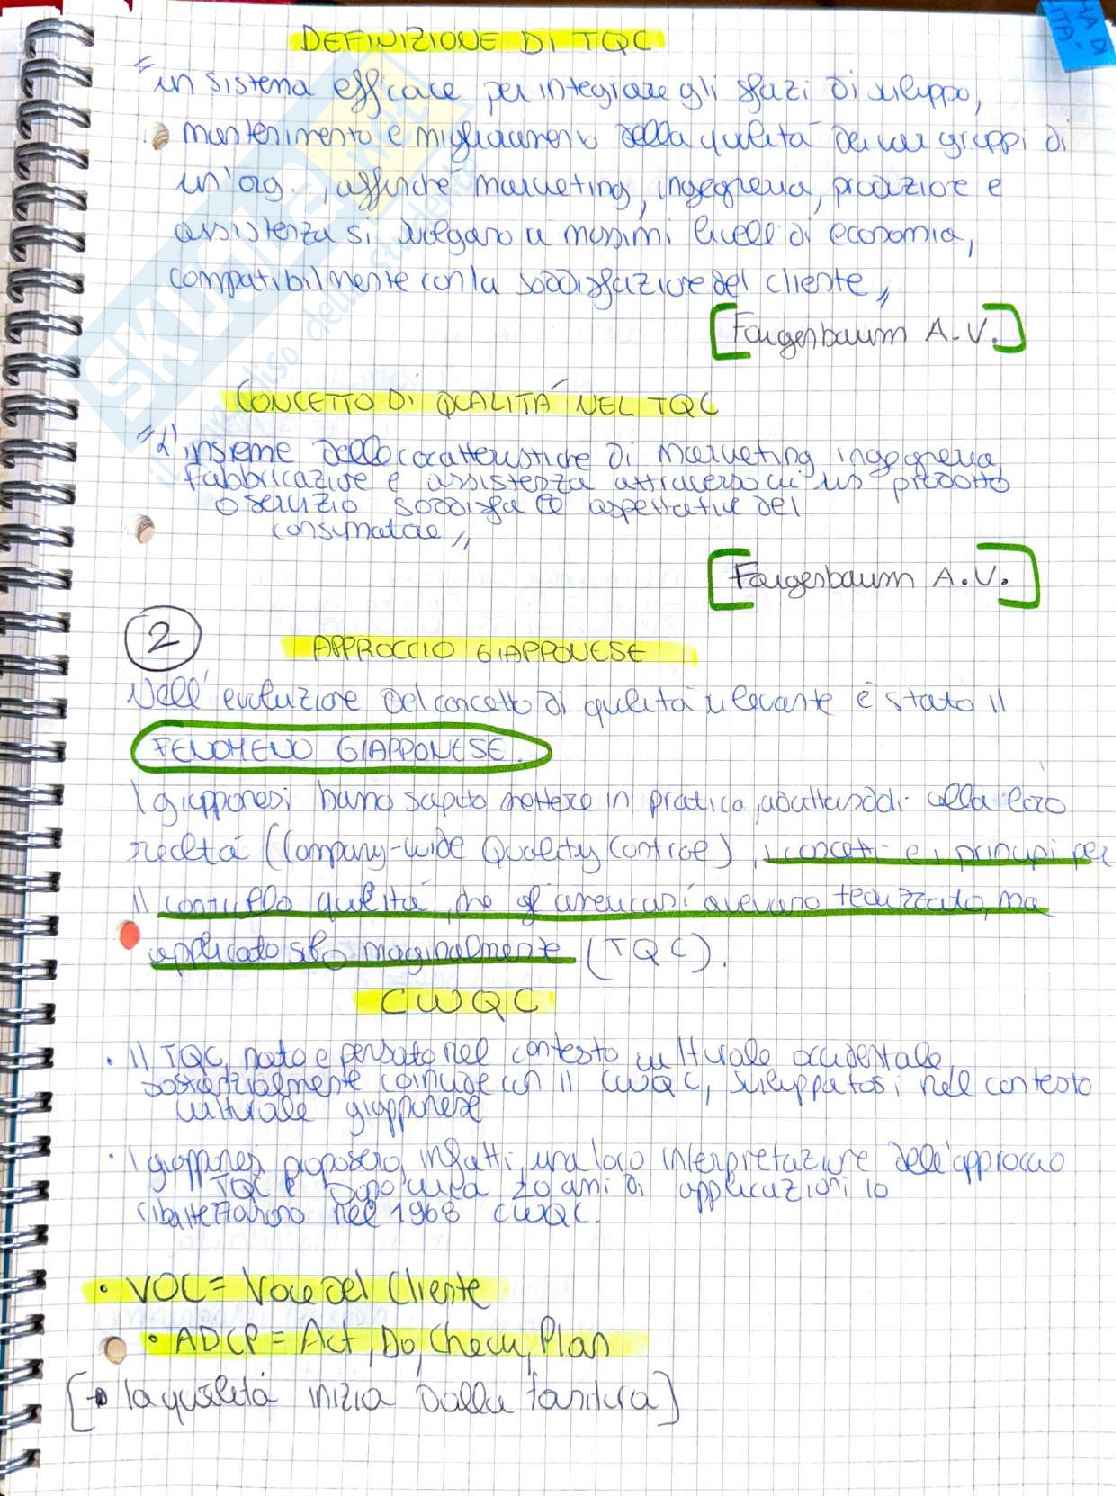 DEFINIZIONE DI TQC
"un sistema efficace per integrare gli sforzi di sviluppo,
mantenimento e miglioramento della qualità dei vari gruppi di
un'org., affinché marketing, ingegneria, produzione e
assistenza si svolgano a massimi livelli di economia,
compatibilmente con la soddisfazione del cliente"
[Faigenbaum A.V.]
CONCETTO DI QUALITÁ NEL TQC
"L'insieme delle caratteristiche di marketing, ingegneria,
fabbricazione e assistenza attraverso cui un prodotto
o servizio soddisfa le aspettative del
consumatore"
[Faigenbaum A.V.]
2
APPROCCIO GIAPPONESE
Nell'evoluzione del concetto di qualità rilevante è stato il
FENOMENO GIAPPONESE.
I giapponesi hanno saputo mettere in pratica, adattandoli alla loro
realtà (Company-wide Quality Control), i concetti e i principi per
il controllo qualità, che gli americani avevano teorizzato, ma
applicato solo marginalmente (TQC).
CWQC
• Il TQC, nato e pensato nel contesto culturale occidentale,
sostanzialmente coincide con il CWQC, sviluppatosi nel contesto
culturale giapponese
• I giapponesi proposero, infatti, una loro interpretazione dell'approccio
TQC e dopo circa 20 anni di applicazioni lo
ribattezzarono nel 1968 CWQC.
• VOC = Voce del Cliente
• ADCP = Act, Do, Check, Plan
[→ la qualità inizia dalla fornitura]